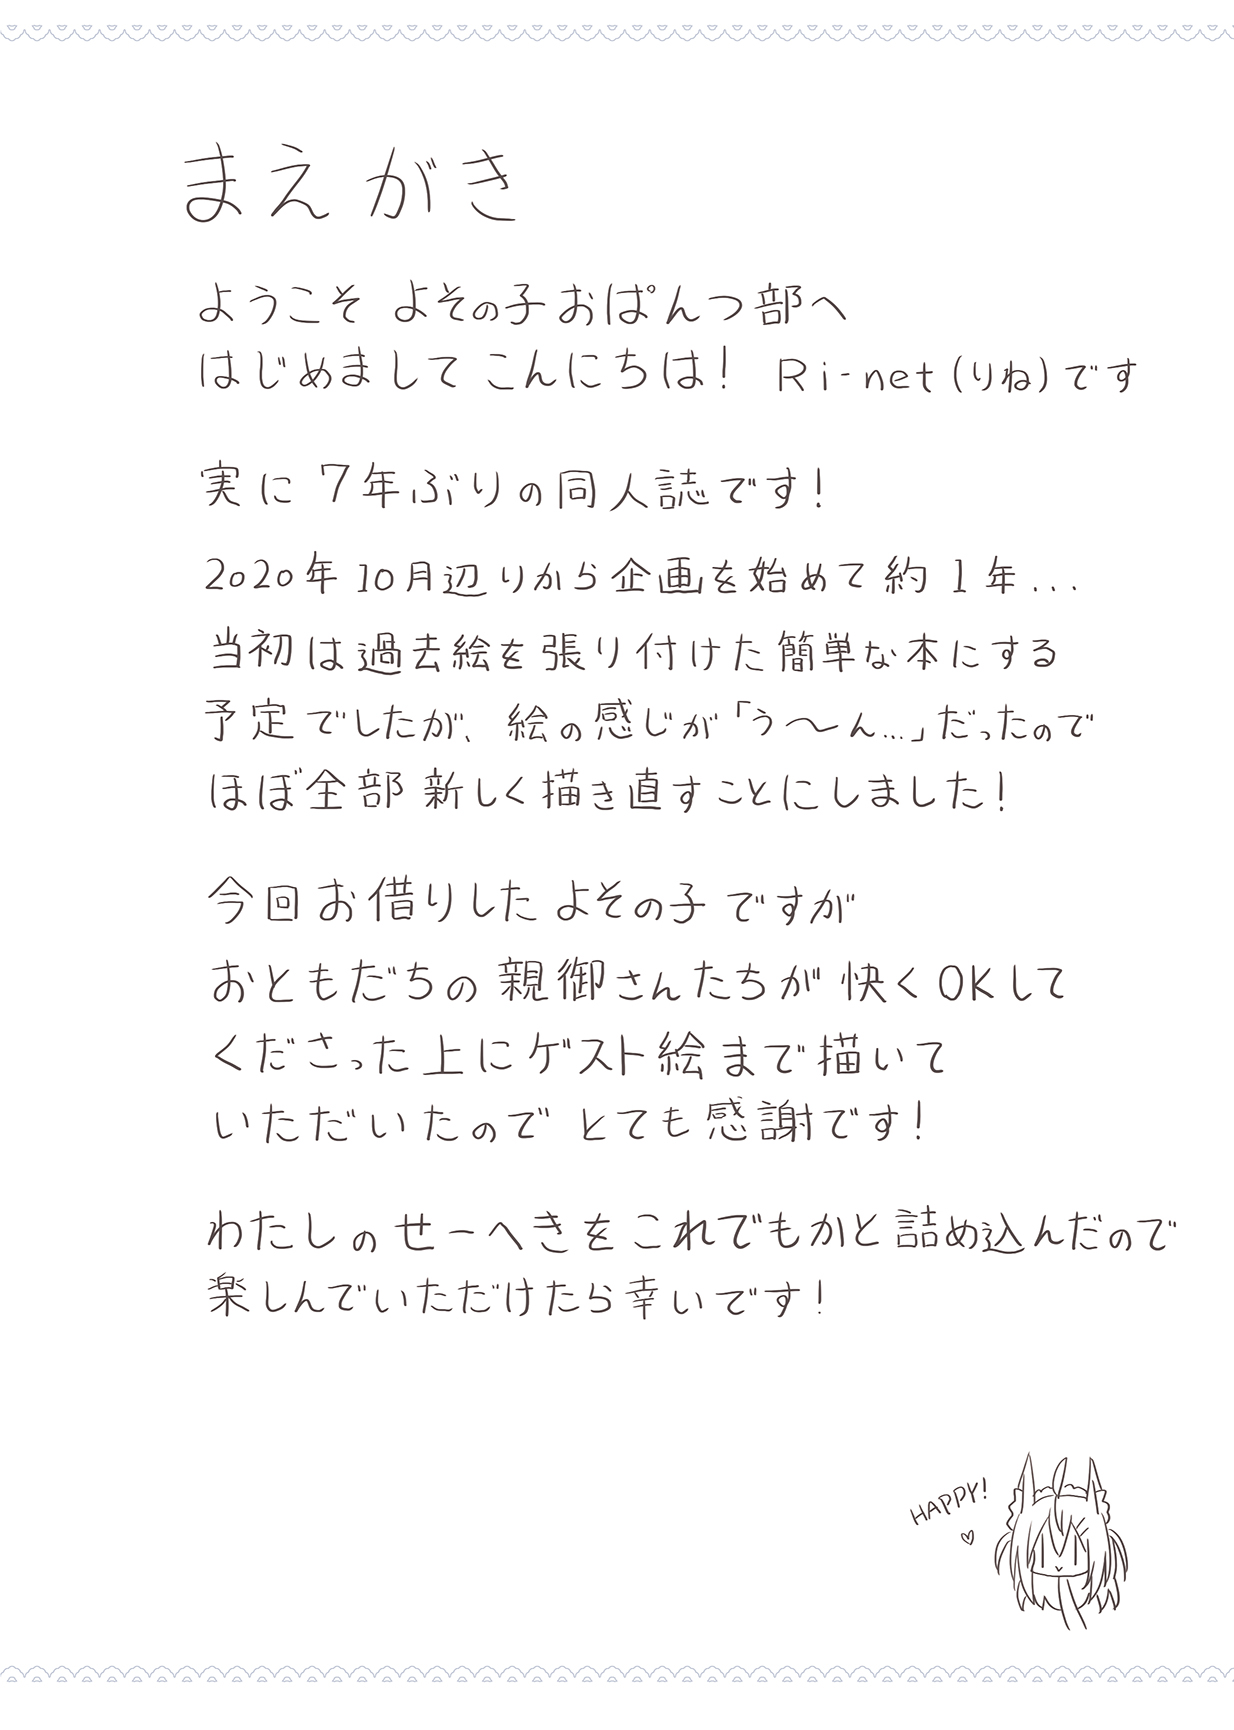 まえがき
ようこそ よその子おぱんつ部へ
はじめまして こんにちは! Ri-net(りね)です
実に 7年ぶりの同人誌です!
2020年10月辺りから企画を始めて約1年...
当初は過去絵を張り付けた簡単な本にする
予定でしたが、絵の感じが「う〜ん...」だったので
ほぼ全部新しく描き直すことにしました!
今回お借りした よその子 ですが
おともだちの親御さんたちが快くOKして
くださった上にゲスト絵まで描いて
いただいたので とても感謝です!
わたしのせーへきをこれでもかと詰め込んだので
楽しんでいただけたら幸いです!
HAPPY!